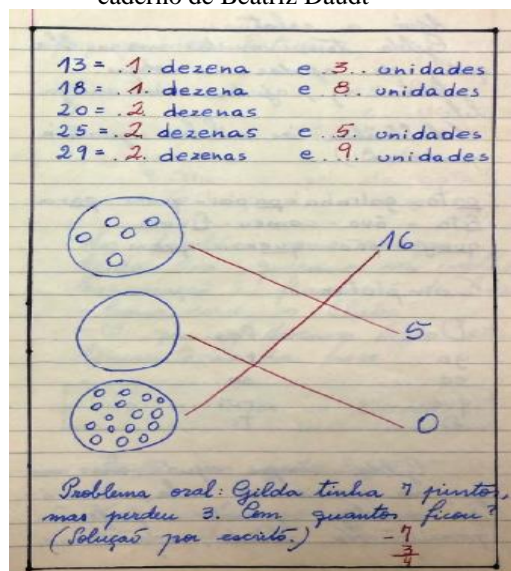 caderno de Beatriz Daudt
13 = .1. dezena e .3.. unidades
18 = .1. dezena e .8. unidades
20 = .2 dezenas
25 = .2 dezenas e .5. unidades
29 = .2. dezenas e .9. unidades
16
5
0
Problema oral: Gilda tinha 7 pintos,
mas perdeu 3. Com quantos ficou?
(Solução por escrito.) - 7
3
4